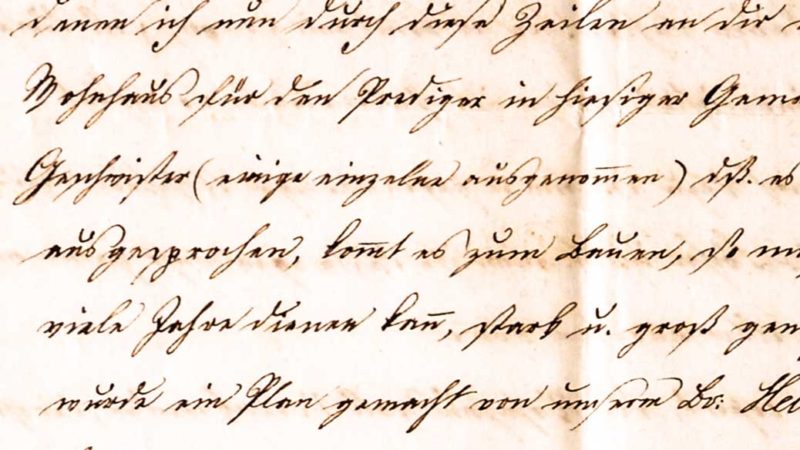 denen ich nun durch diese Zeilen an dir
Wohnhaus für den Prediger in hiesiger Gem
Geschwister (einige einzelne ausgenom̅en) dß. es
ausgesprochen, kom̅t es zum Bauen, so
viele Jahre dienen kan̅, stark u. groß gen
wurde ein Plan gemacht von unserm Br: Hei